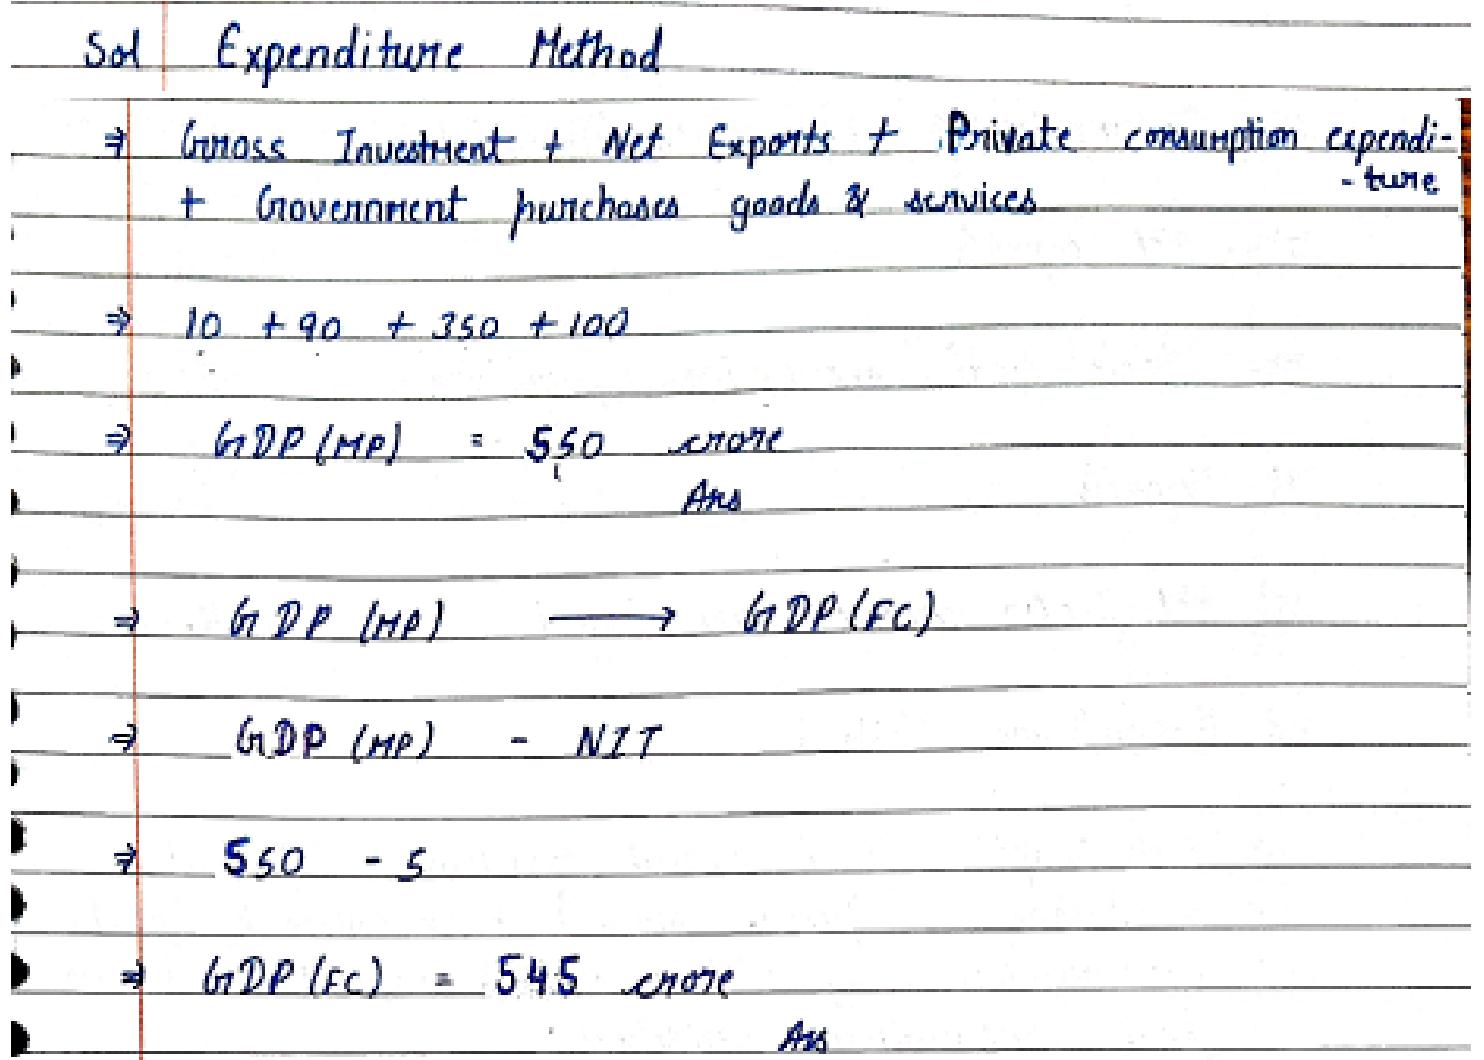 Sol Expenditure Method
⇒ Gross Investment + Net Exports + Private consumption expendi-
- ture
+ Government purchases goods & services
⇒ 10 + 90 + 350 + 100
⇒ GDP (MP) = 550 crore
Ans
⇒ GDP (MP) ⟶ GDP (FC)
⇒ GDP (MP) - NIT
⇒ 550 - 5
⇒ GDP (FC) = 545 crore
Ans